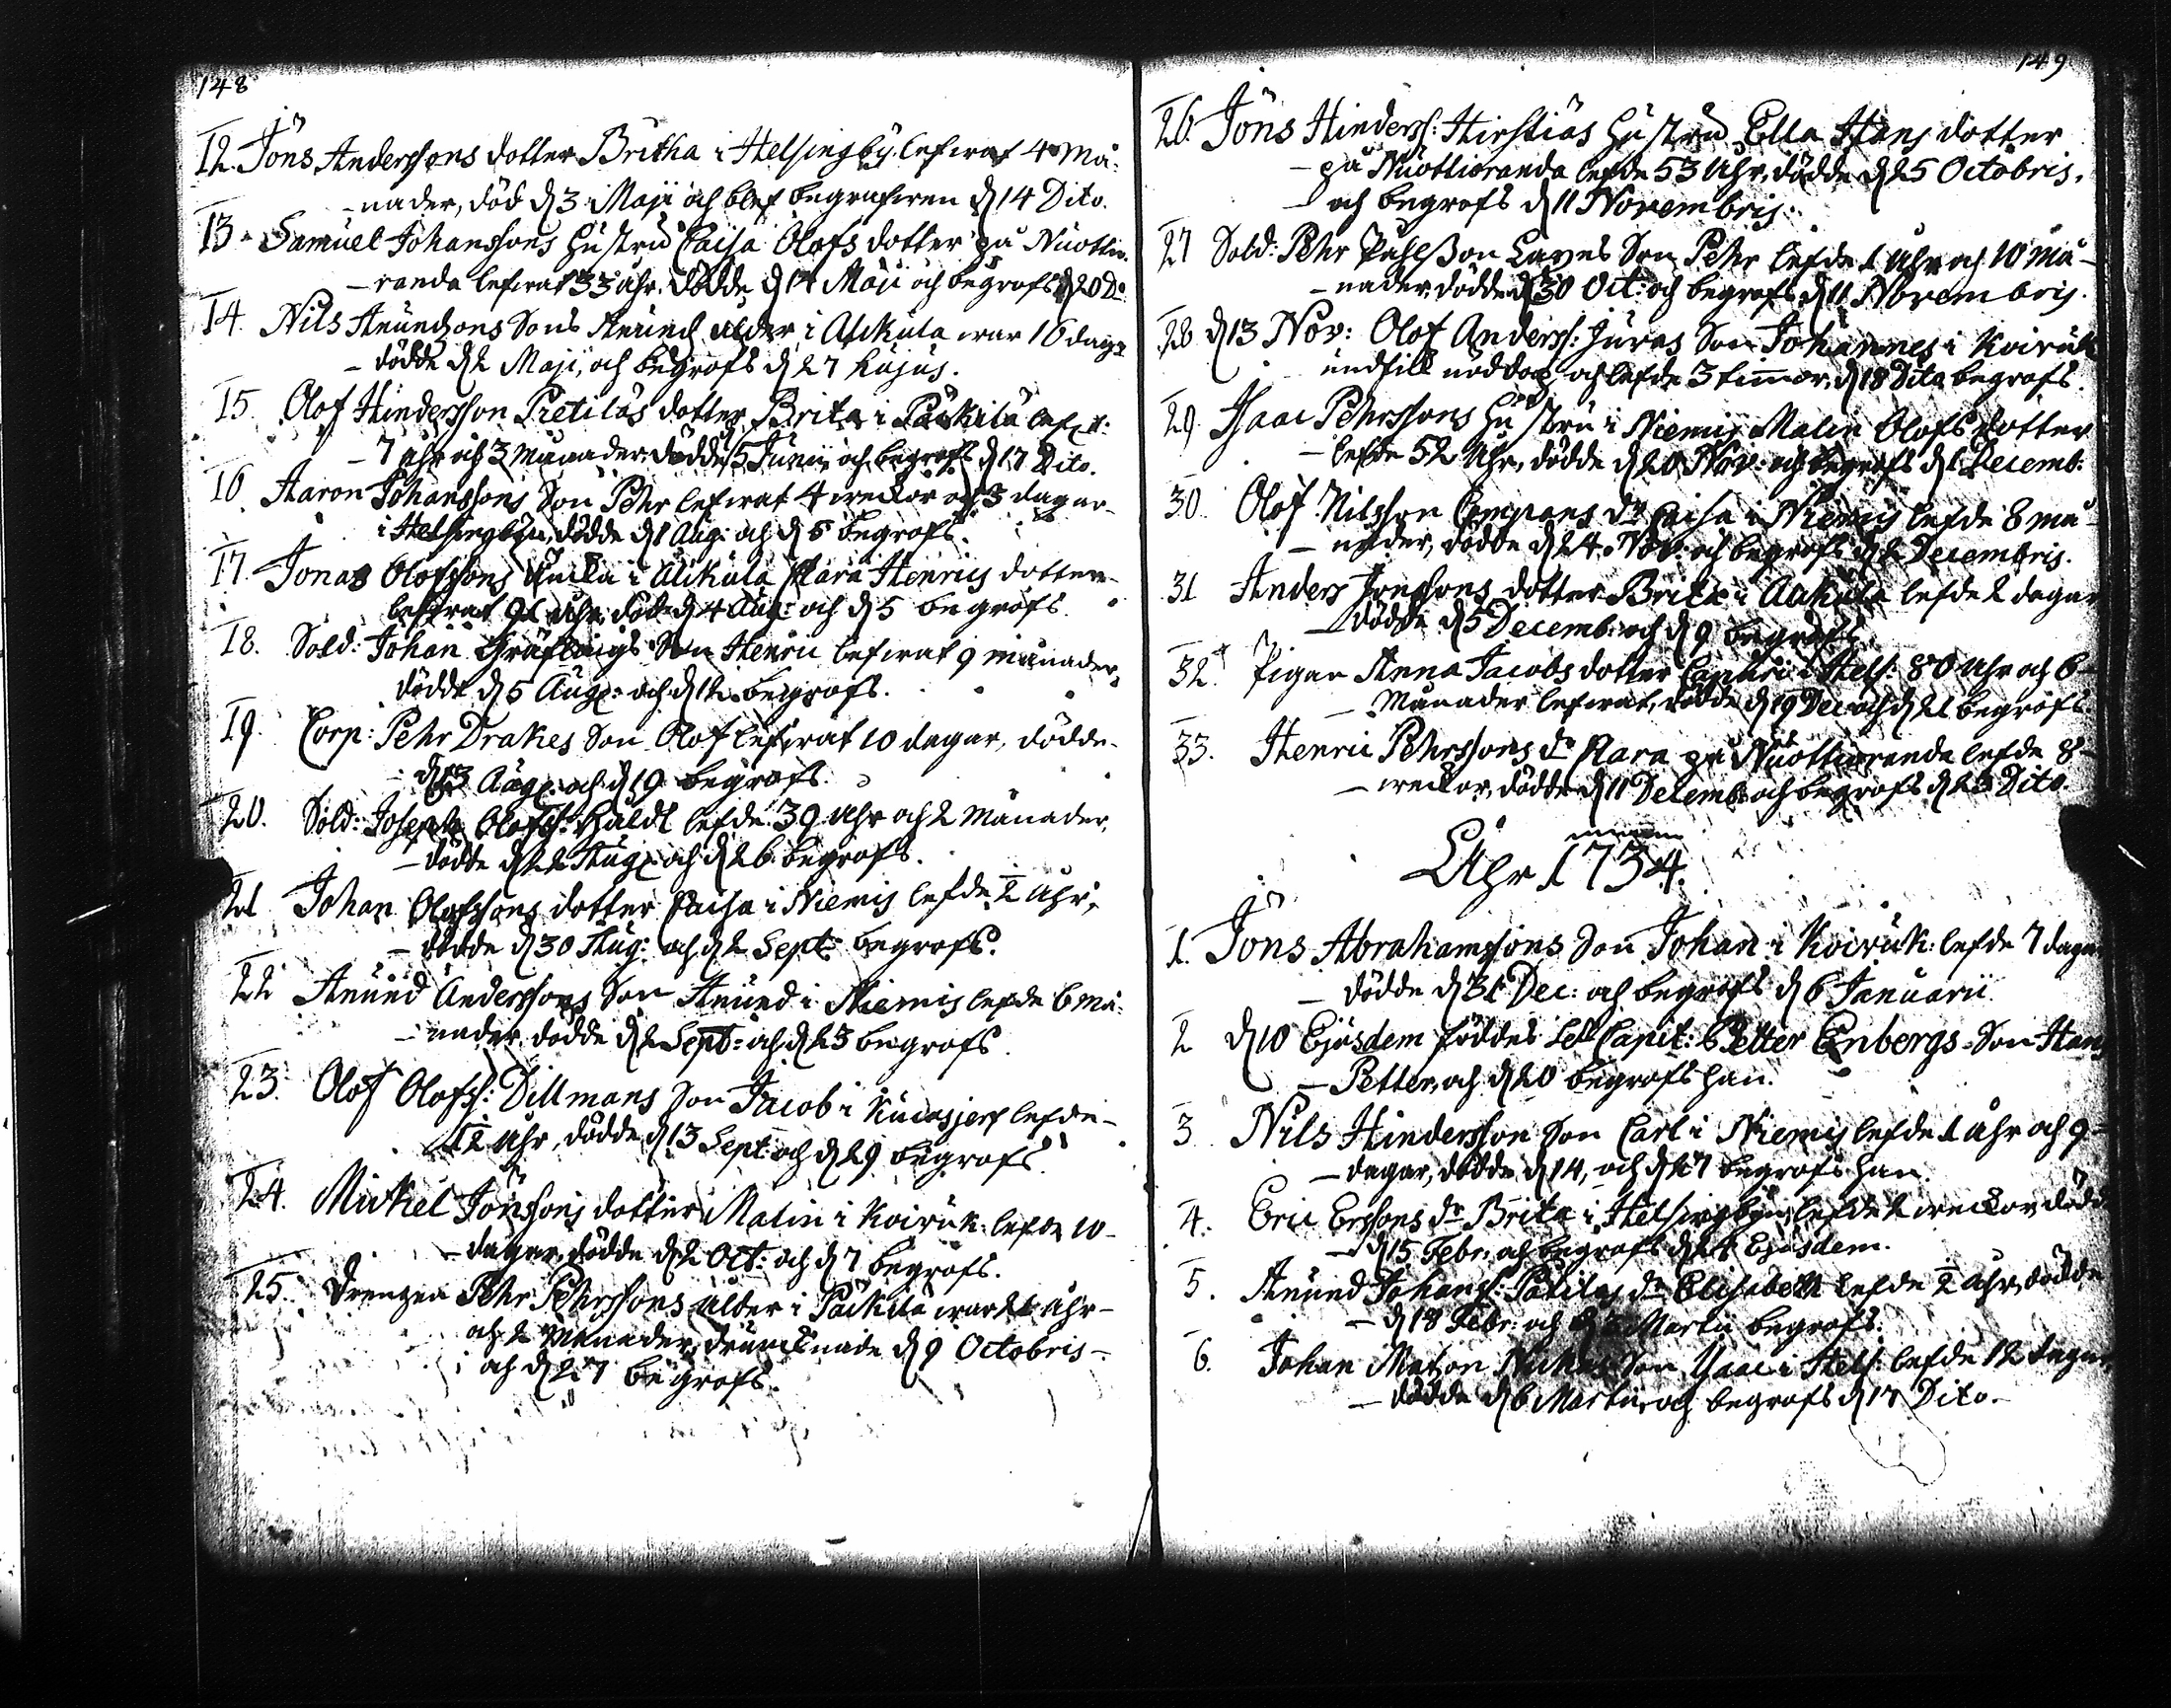 148
12. Jöns Anderssons dotter Britha i Helsingby lefwat 4 må-
nader, död d. 3 Maji och blef begrafwen d. 14 Dito.
13 Samuel Johanssons hustru Caisa Olofs dotter på Nuottio-
randa lefwat 33 åhr. dödde d. 17 Maji och begrofs d. 20 Do
14. Nils Anundsons Sons Anund ålder i Alkula war 16 dagr
dödde d. 2 Maji, och begrofs d. 27 hujus.
15. Olof Hindersson Pietiläs dotter Brita i Päkkilä lefwt:
7 åhr och 3 månader dödde 5 Junii och begrofs d. 17 Dito.
16 Aaron Johanssons Son Pehr lefwat 4 weckor och 3 dagar
i Helsingbyn, dödde d. 1 Aug: och d. 5 begrofs.
17. Jonas Olofssons Enka i Alikula Klara Henrics dotter
lefwat 92 åhr, död d. 4 Aug: och d. 5 begrofs
18. Sold: Johan Son Henric lefwat 9 månader,
dödde d. 5 Aug: och d. 12 begrofs.
19. Corp: Pehr Drakes Son Olof lefwat 10 dagar, dödde
d. 13 Aug: och d. 19 begrofs.
20. Sold: Joseph Olofss: Huldt lefde 39 åhr och 2 månader,
dödde d. 22 Aug: och d. 26 begrofs.
21 Johan Olofssons dotter Caisa i Niemis lefde ½ åhr,
dödde d. 30 Aug: och d. 2 Sept: begrofs.
22 Anund Anderssons Son Anund i Niemis lefde 6 må-
nader, dödde d. 2 Sept: och d. 23 begrofs
23. Olof Olofss: Dillmans Son Jacob i Kuiwasjerf lefde
12 åhr, dödde d. 13 Sept: och d. 29 begrofs.
24. Mickel Jönssons dotter Malin i Koiwuk: lefde 10
dagar, dödde d. 2 Oct: och d. 7 begrofs.
25. Drengen Pehr Pehrssons ålder i Päckilä war 21 åhr
och 2 Månader, drunknade d. 9 Octobris
och d. 27 begrofs.
149
26. Jöns Hinderss: Hirstiös hustru Ella Hans dotter
på Nuottioranda lefde 53 åhr, dödde d. 25 Octobris,
och begrofs d. 11 Novembris.
27 Sold: Pehr Påhlsson Son Pehr lefde 1 åhr och 10 må-
nader, dödde d. 30 Oct: och begrofs d. 11 Novembris.
28 d. 13 Nov: Olof Anderss: Juvas Son Johannes i Koivuk
undfick nöddop och lefde 3 timmar, d. 18 Dito begrofs.
29 Isaac Pehrssons hustru i Niemis Malin Olofs dotter
lefde 52 åhr, dödde d. 20 Nov: och begrofs d. 2 Decemb:
30. Olof Nilsson Compans dr Caisa i Niemis lefde 8 må-
nader, dödde d. 24. Nov: och begrofs d. 2 Decembris.
31 Anders Jonssons dotter Brita i Alkula lefde 2 dagar
dödde d. 5 Decemb: och d. 9 begrofs.
32. Pigan Anna Jacobs dotter i Hels: 80 åhr och 6
Månader lefwat, dödde d. 19 Dec och d. 21 begrofs.
33. Henric Pehrssons dr Klara på Nuottioranda lefde 8
weckor, dödde d. 11 Decemb: och begrofs d. 23 Dito.
Åhr 1734.
1. Jöns Abrahamssons Son Johan i Koiwuk: lefde 7 dagar
dödde d. 31 Dec: och begrofs d. 6 Januarii
2 d. 10 Ejusdem föddes Capit: Petter Enbergs Son Hans
Petter, och d. 20 begrofs han.
3 Nils Hindersson Son Carl i Niemis lefde 1 åhr och 9
dagar, dödde d. 14, och d. 27 begrofs han.
4. Eric Erssons dr Brita i Helsingbyn, lefde 2 weckor, dödde
d. 15 Febr: och begrofs d. 24 Ejusdem.
5. Anund Johanss: dr Elisabeth lefde ½ åhr, dödde
d. 18 Febr: och d. 3 Martii begrofs.
6. Johan Matson Son Isaac i Hels: lefde 12 dagar
dödde d. 6 Martii, och begrofs d. 17 Dito.